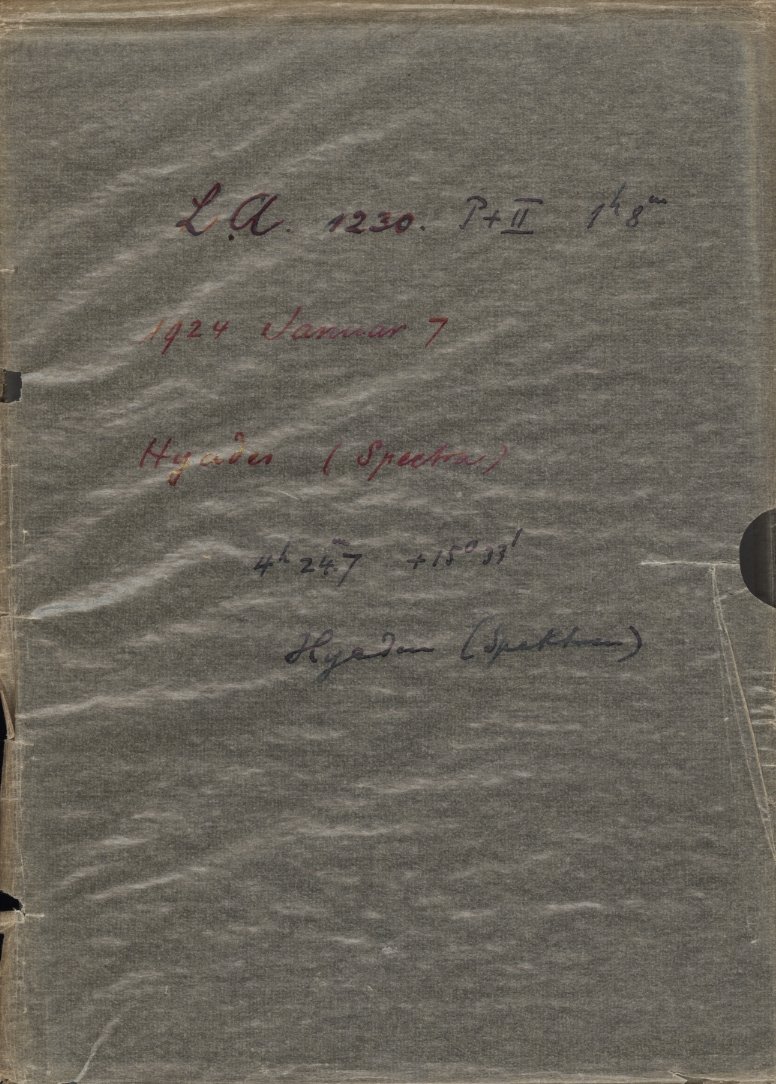 L.A. 1230. P+II 1h 8m
1924 Januar 7
Hyades (Spectra)
4h 24m.7 +15° 33'
Hyaden (Spektren)